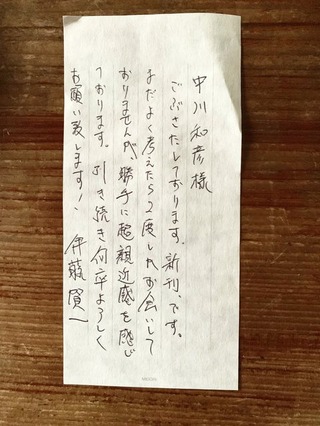 中川和彦様
ごぶさたしております。新刊、です。
まだよく考えたら2度しかお会いして
おりませんが、勝手に超親近感を感じ
ております。引き続き何卒よろしく
お願い致します！ 伊藤賢一